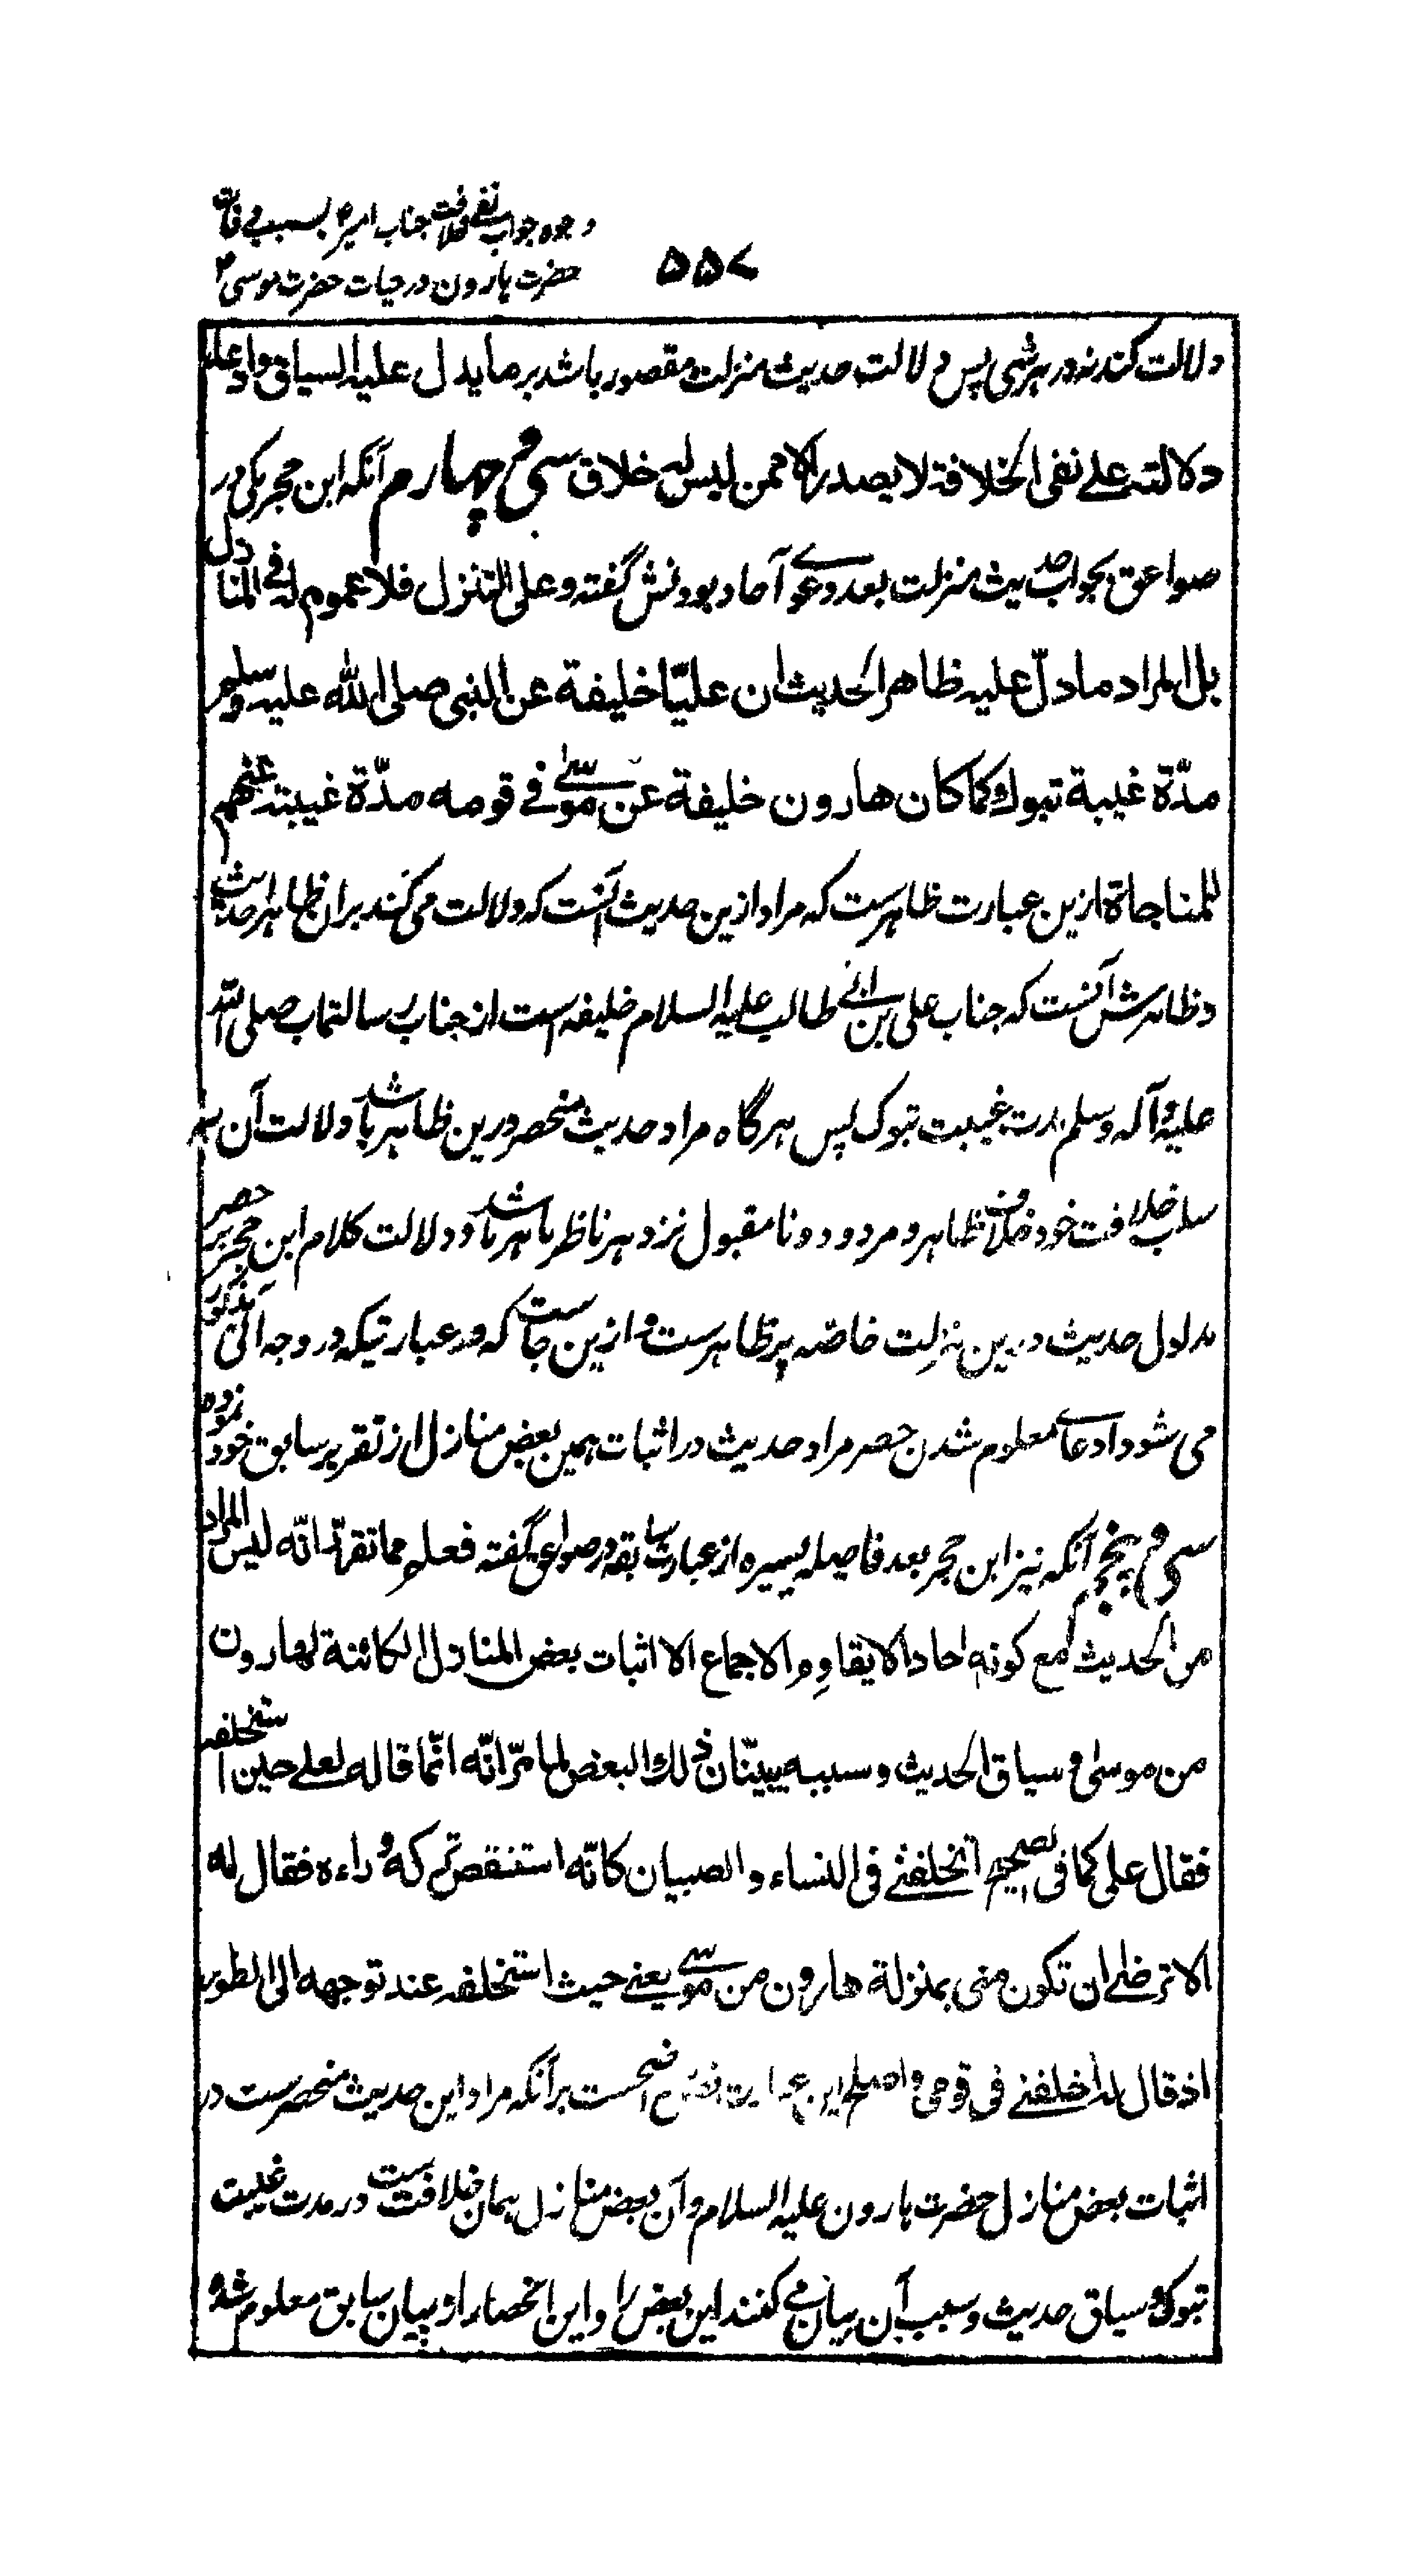 وجوه جواب نفی خلافت جناب امیرؑ بسبب وفات
حضرت هارون در حیات حضرت موسیؑ
۵۵۷
دلالت کند نه در هر شی پس دلالت حدیث منزلت مقصور باشد بر ما یدل علیه السیاق وادعاء
دلالته علے نفی الخلافة لا یصدر الا ممن لیس له خلاق سی و چهارم آنکه ابن حجر مکی در
صواعق بجواب حدیث منزلت بعد دعوے آحاد بودنش گفته وعلی التنزل فلا عموم له فے المنازل
بل المراد ما دلّ علیه ظاهر الحدیث ان علیّا خلیفة عن النبی صلی الله علیه وسلم
مدّة غیبة تبوك کما کان هارون خلیفة عن موسے فے قومه مدّة غیبته عنهم
للمناجاة ازین عبارت ظاهرست که مراد ازین حدیث آنست که دلالت می کند بران ظاهر حدیث
وظاهرش آنست که جناب علی بن ابی طالب علیه السلام خلیفه است از جناب رسالتمآب صلی الله
علیه وآله وسلم مدت غیبت تبوک پس هرگاه مراد حدیث منحصر درین ظاهر باشد دلالت آن بر
سلب خلافت خود خلاف ظاهر و مردود و نا مقبول نزد هر ناظر ماهر باشد و دلالت کلام ابن حجر بر حصر
مدلول حدیث درین منزلت خاصّه پر ظاهرست و ازین جاست که در عبارتیکه در وجه آتی مذکور
می شود ادعاے معلوم شدن حصر مراد حدیث در اثبات همین بعض منازل از تقریر سابق خود نموده
سی و پنجم آنکه نیز ابن حجر بعد فاصله یسیره از عبارت سابقه در صواعق گفته فعلم مما تقرر انّه لیس المراد
من الحدیث مع کونه احادا لا یقاوم الاجماع الا اثبات بعض المنازل الکائنة لهارون
من موسیٰ و سیاق الحدیث وسببه یبیّنان ذلك البعض لما مرّ انّه انّما قاله لعلے حین استخلفه
فقال علی کما فی الصحیح اتخلفنے فی النساء والصبیان کانّه استنقص ترکه وراءه فقال له
الا ترضے ان تکون منی بمنزلة هارون من موسے یعنے حیث استخلفه عند توجهه الی الطور
اذ قال له اخلفنے فی قومی واصلح این عبارت واضحست برآنکه مراد این حدیث منحصرست در
اثبات بعض منازل حضرت هارون علیه السلام وآن بعض منازل همان خلافتست در مدت غیبت
تبوک و سیاق حدیث و سبب آن بیان می کنند این بعض را و این انحصار از بیان سابق معلوم شد